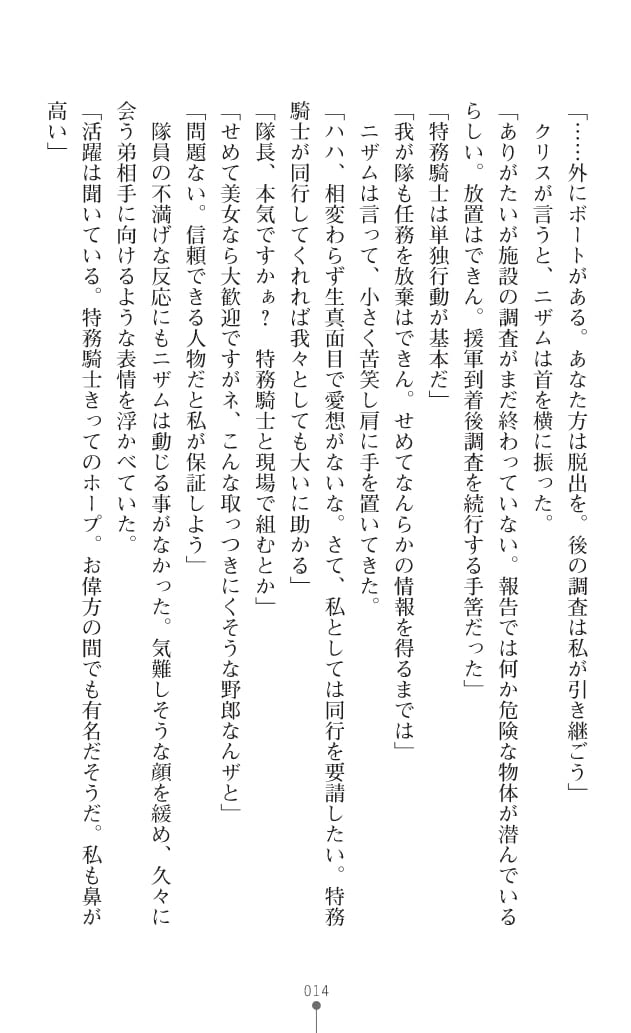 「……外にボートがある。あなた方は脱出を。後の調査は私が引き継ごう」
　クリスが言うと、ニザムは首を横に振った。
「ありがたいが施設の調査がまだ終わっていない。報告では何か危険な物体が潜んでいる
らしい。放置はできん。援軍到着後調査を続行する手筈だった」
「特務騎士は単独行動が基本だ」
「我が隊も任務を放棄はできん。せめてなんらかの情報を得るまでは」
　ニザムは言って、小さく苦笑し肩に手を置いてきた。
「ハハ、相変わらず生真面目で愛想がないな。さて、私としては同行を要請したい。特務
騎士が同行してくれれば我々としても大いに助かる」
「隊長、本気ですかぁ？　特務騎士と現場で組むとか」
「せめて美女なら大歓迎ですがネ、こんな取っつきにくそうな野郎なんザと」
「問題ない。信頼できる人物だと私が保証しよう」
　隊員の不満げな反応にもニザムは動じる事がなかった。気難しそうな顔を緩め、久々に
会う弟相手に向けるような表情を浮かべていた。
「活躍は聞いている。特務騎士きってのホープ。お偉方の間でも有名だそうだ。私も鼻が
高い」
014